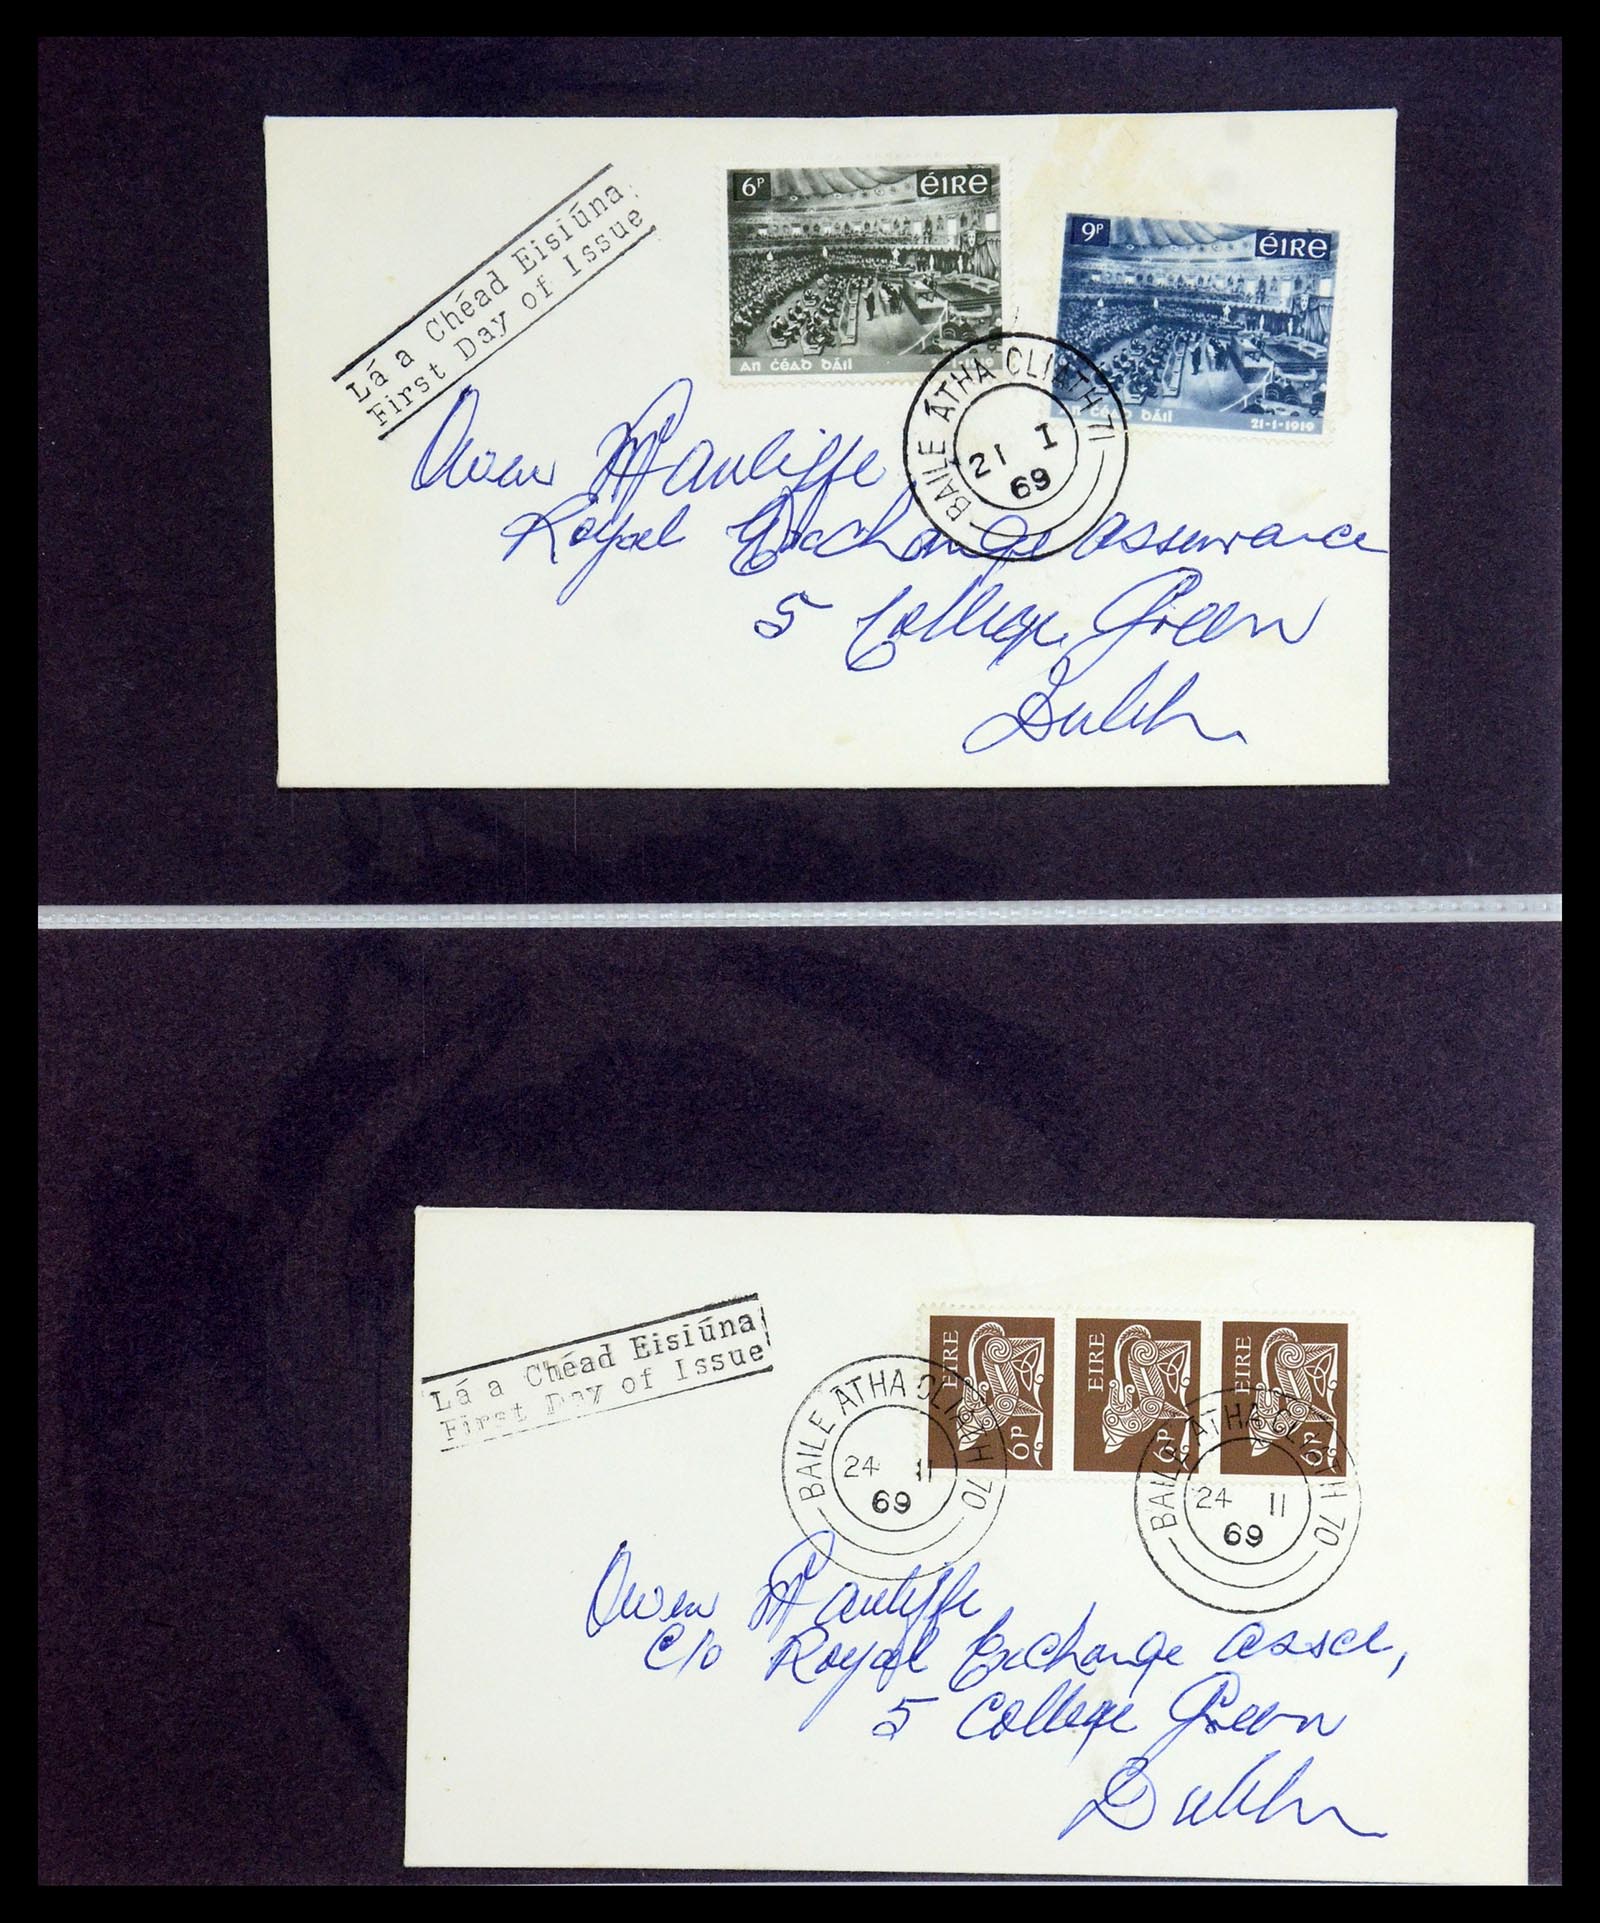 Lá a Chéad Eisiúna
First Day of Issue
6P
ÉIRE
An Céad Dáil
1919
9P
ÉIRE
An Céad Dáil
21-1-1919
BAILE ÁTHA CLIATH 71
21 I
69
Owen McAuliffe
Royal Exchange Assurance
5 College Green
Dublin
Lá a Chéad Eisiúna
First Day of Issue
EIRE
6p
EIRE
6p
EIRE
6p
BAILE ÁTHA CLIATH 70
24 II
69
BAILE ÁTHA CLIATH 70
24 II
69
Owen McAuliffe
c/o Royal Exchange Assce,
5 College Green
Dublin